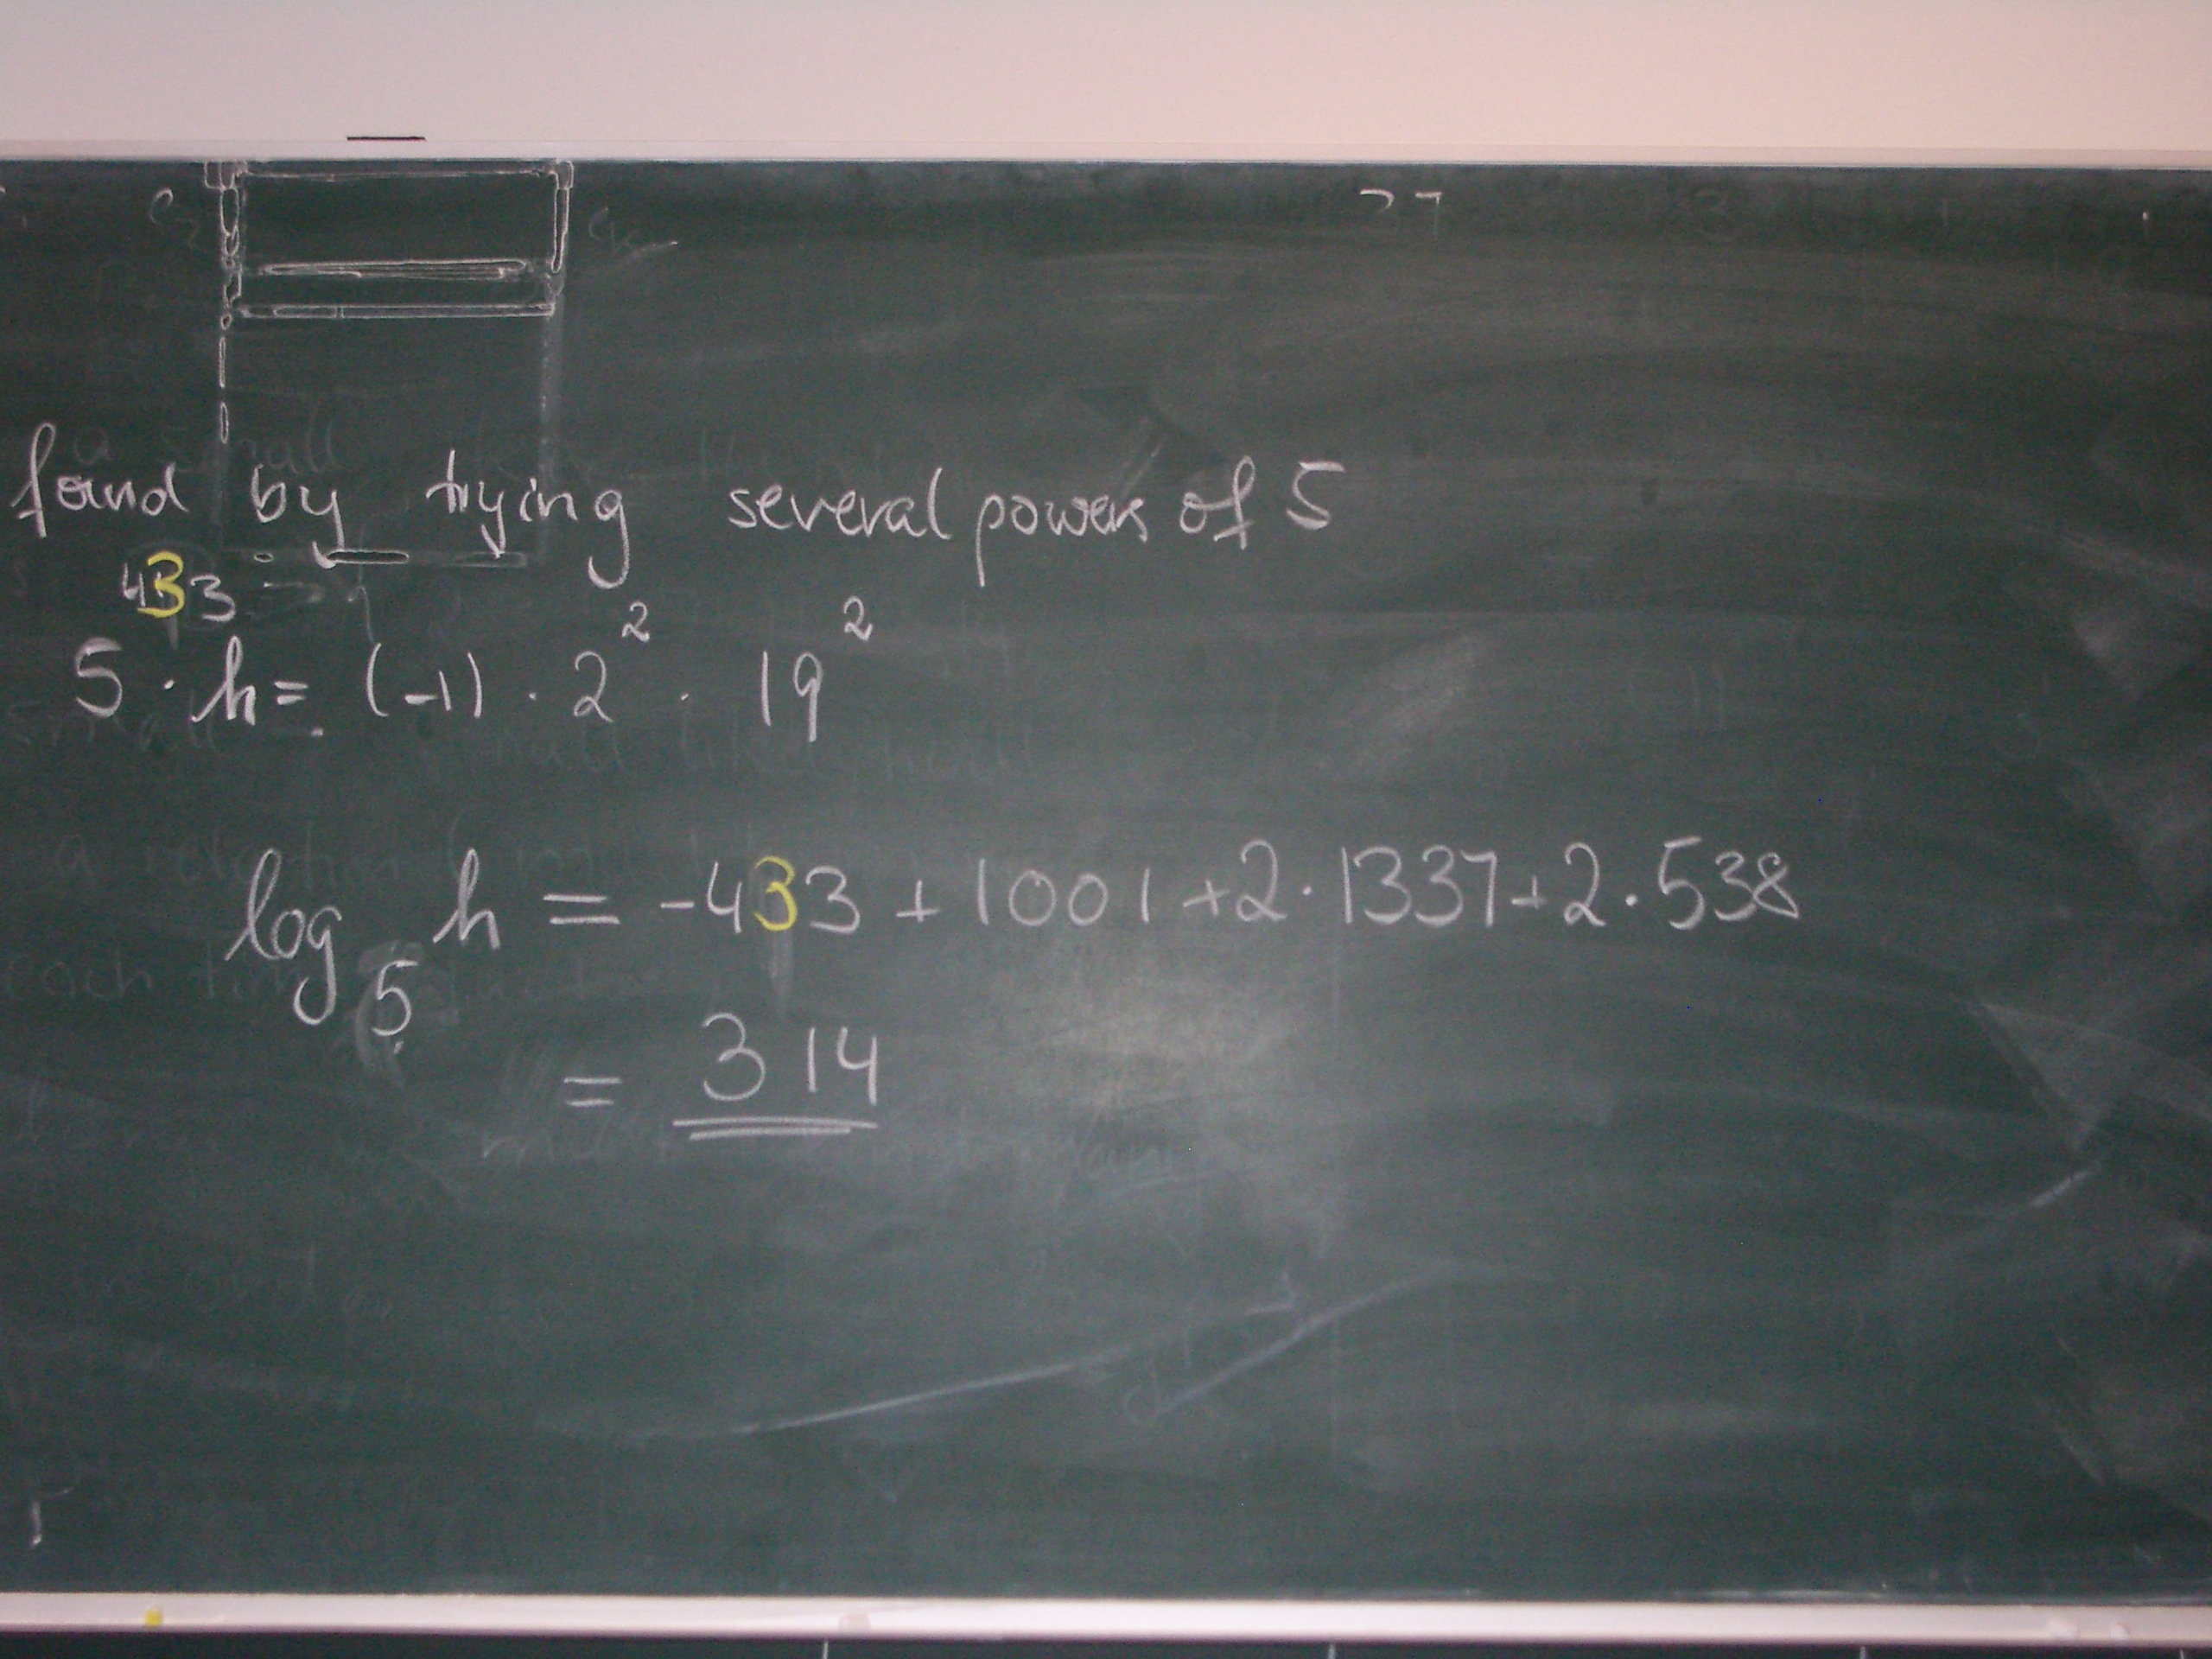 found by trying several powers of 5
5^433 · h = (-1) · 2^2 · 19^2
log_5 h = -433 + 1001 + 2·1337 + 2·538
= 314